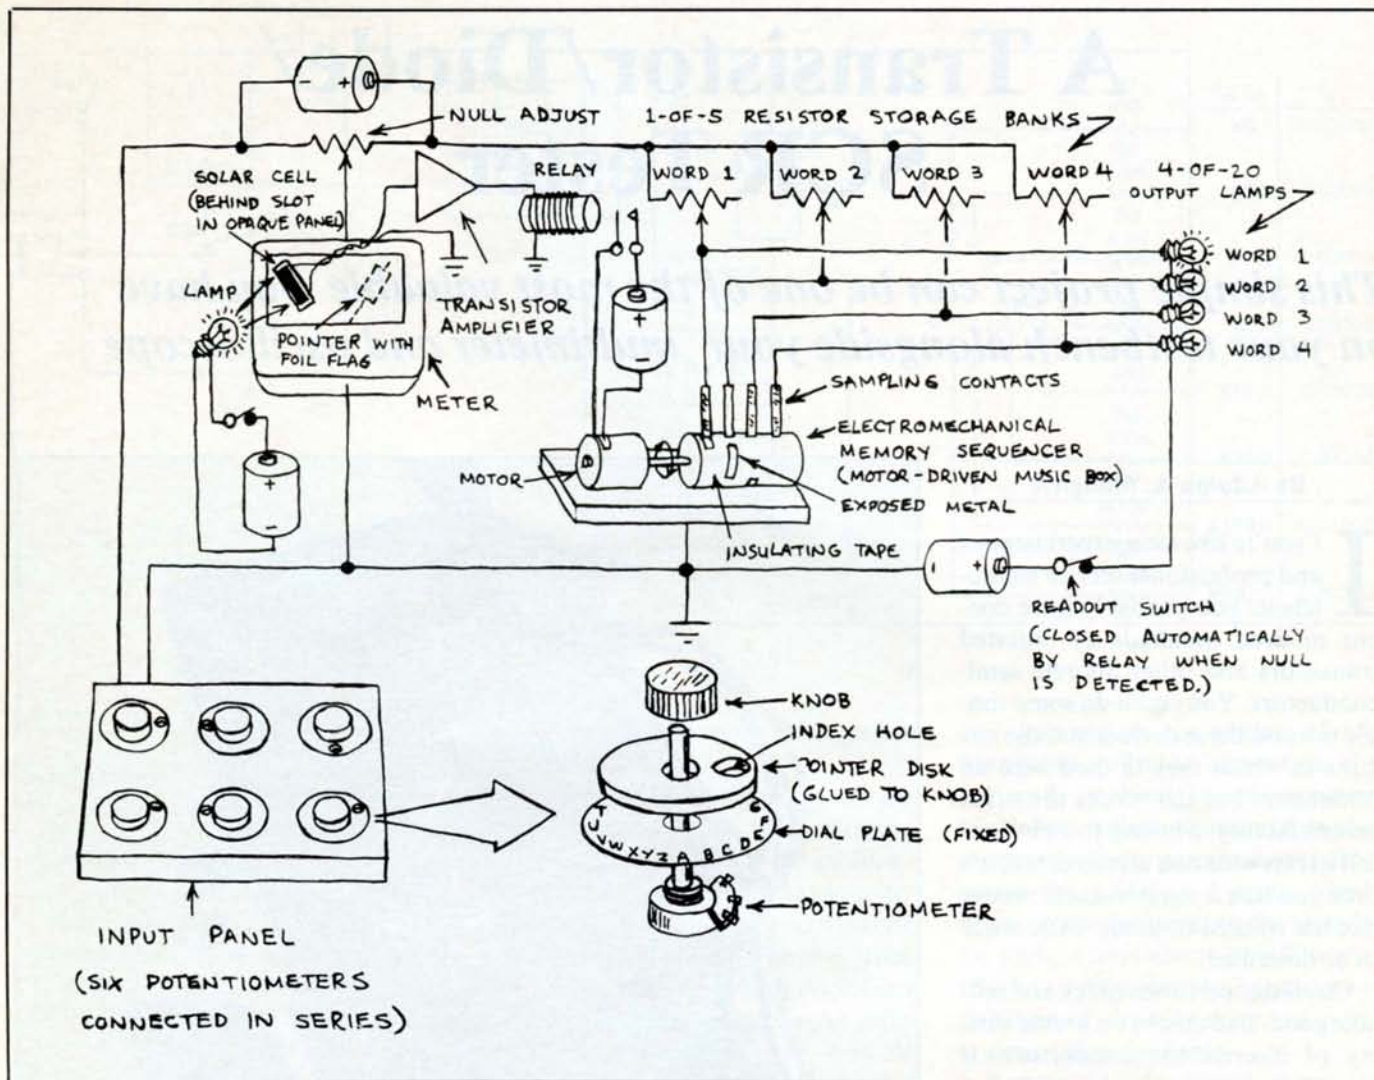 NULL ADJUST
1-OF-5 RESISTOR STORAGE BANKS
SOLAR CELL
(BEHIND SLOT
IN OPAQUE PANEL)
RELAY
WORD 1
WORD 2
WORD 3
WORD 4
4-OF-20
OUTPUT LAMPS
WORD 1
WORD 2
WORD 3
WORD 4
LAMP
TRANSISTOR
AMPLIFIER
POINTER WITH
FOIL FLAG
METER
SAMPLING CONTACTS
ELECTROMECHANICAL
MEMORY SEQUENCER
(MOTOR-DRIVEN MUSIC BOX)
EXPOSED METAL
MOTOR
INSULATING TAPE
READOUT SWITCH
(CLOSED AUTOMATICALLY
BY RELAY WHEN NULL
IS DETECTED.)
KNOB
INDEX HOLE
POINTER DISK
(GLUED TO KNOB)
DIAL PLATE (FIXED)
T U V W X Y Z A B C D E F G
POTENTIOMETER
INPUT PANEL
(SIX POTENTIOMETERS
CONNECTED IN SERIES)